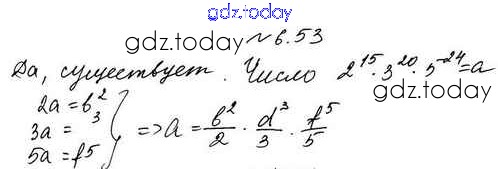 gdz.today
gdz.today №6.53
Да, существует. Число 2^15·3^20·5^-24=a
gdz.today
2a=b^2
3a= ^3
5a=f^5
=>a= b^2/2 · d^3/3 · f^5/5